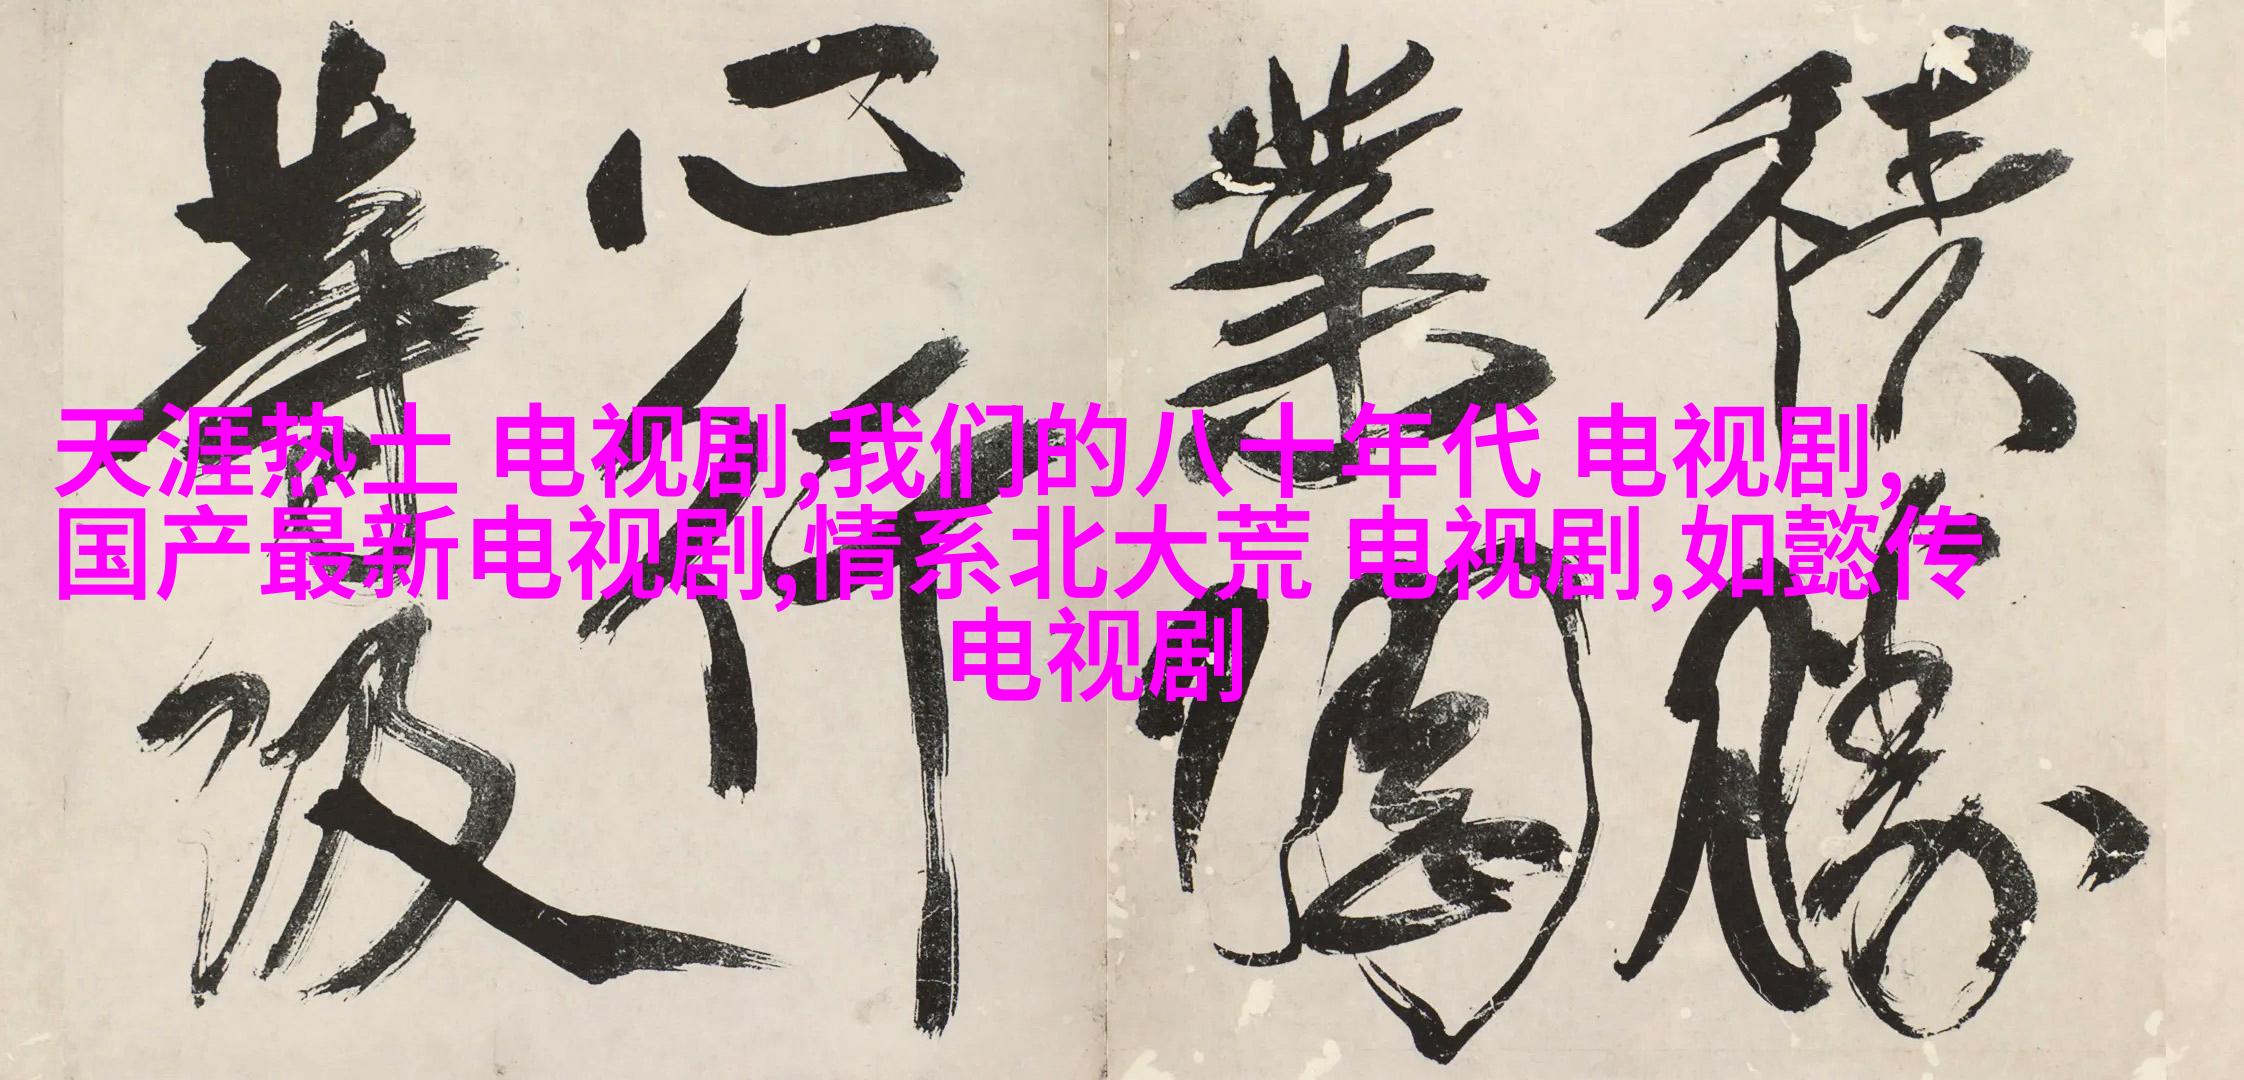 天涯热土 电视剧,我们的八十年代 电视剧,
国产最新电视剧,情系北大荒 电视剧,如懿传
电视剧
積勝
業
心行